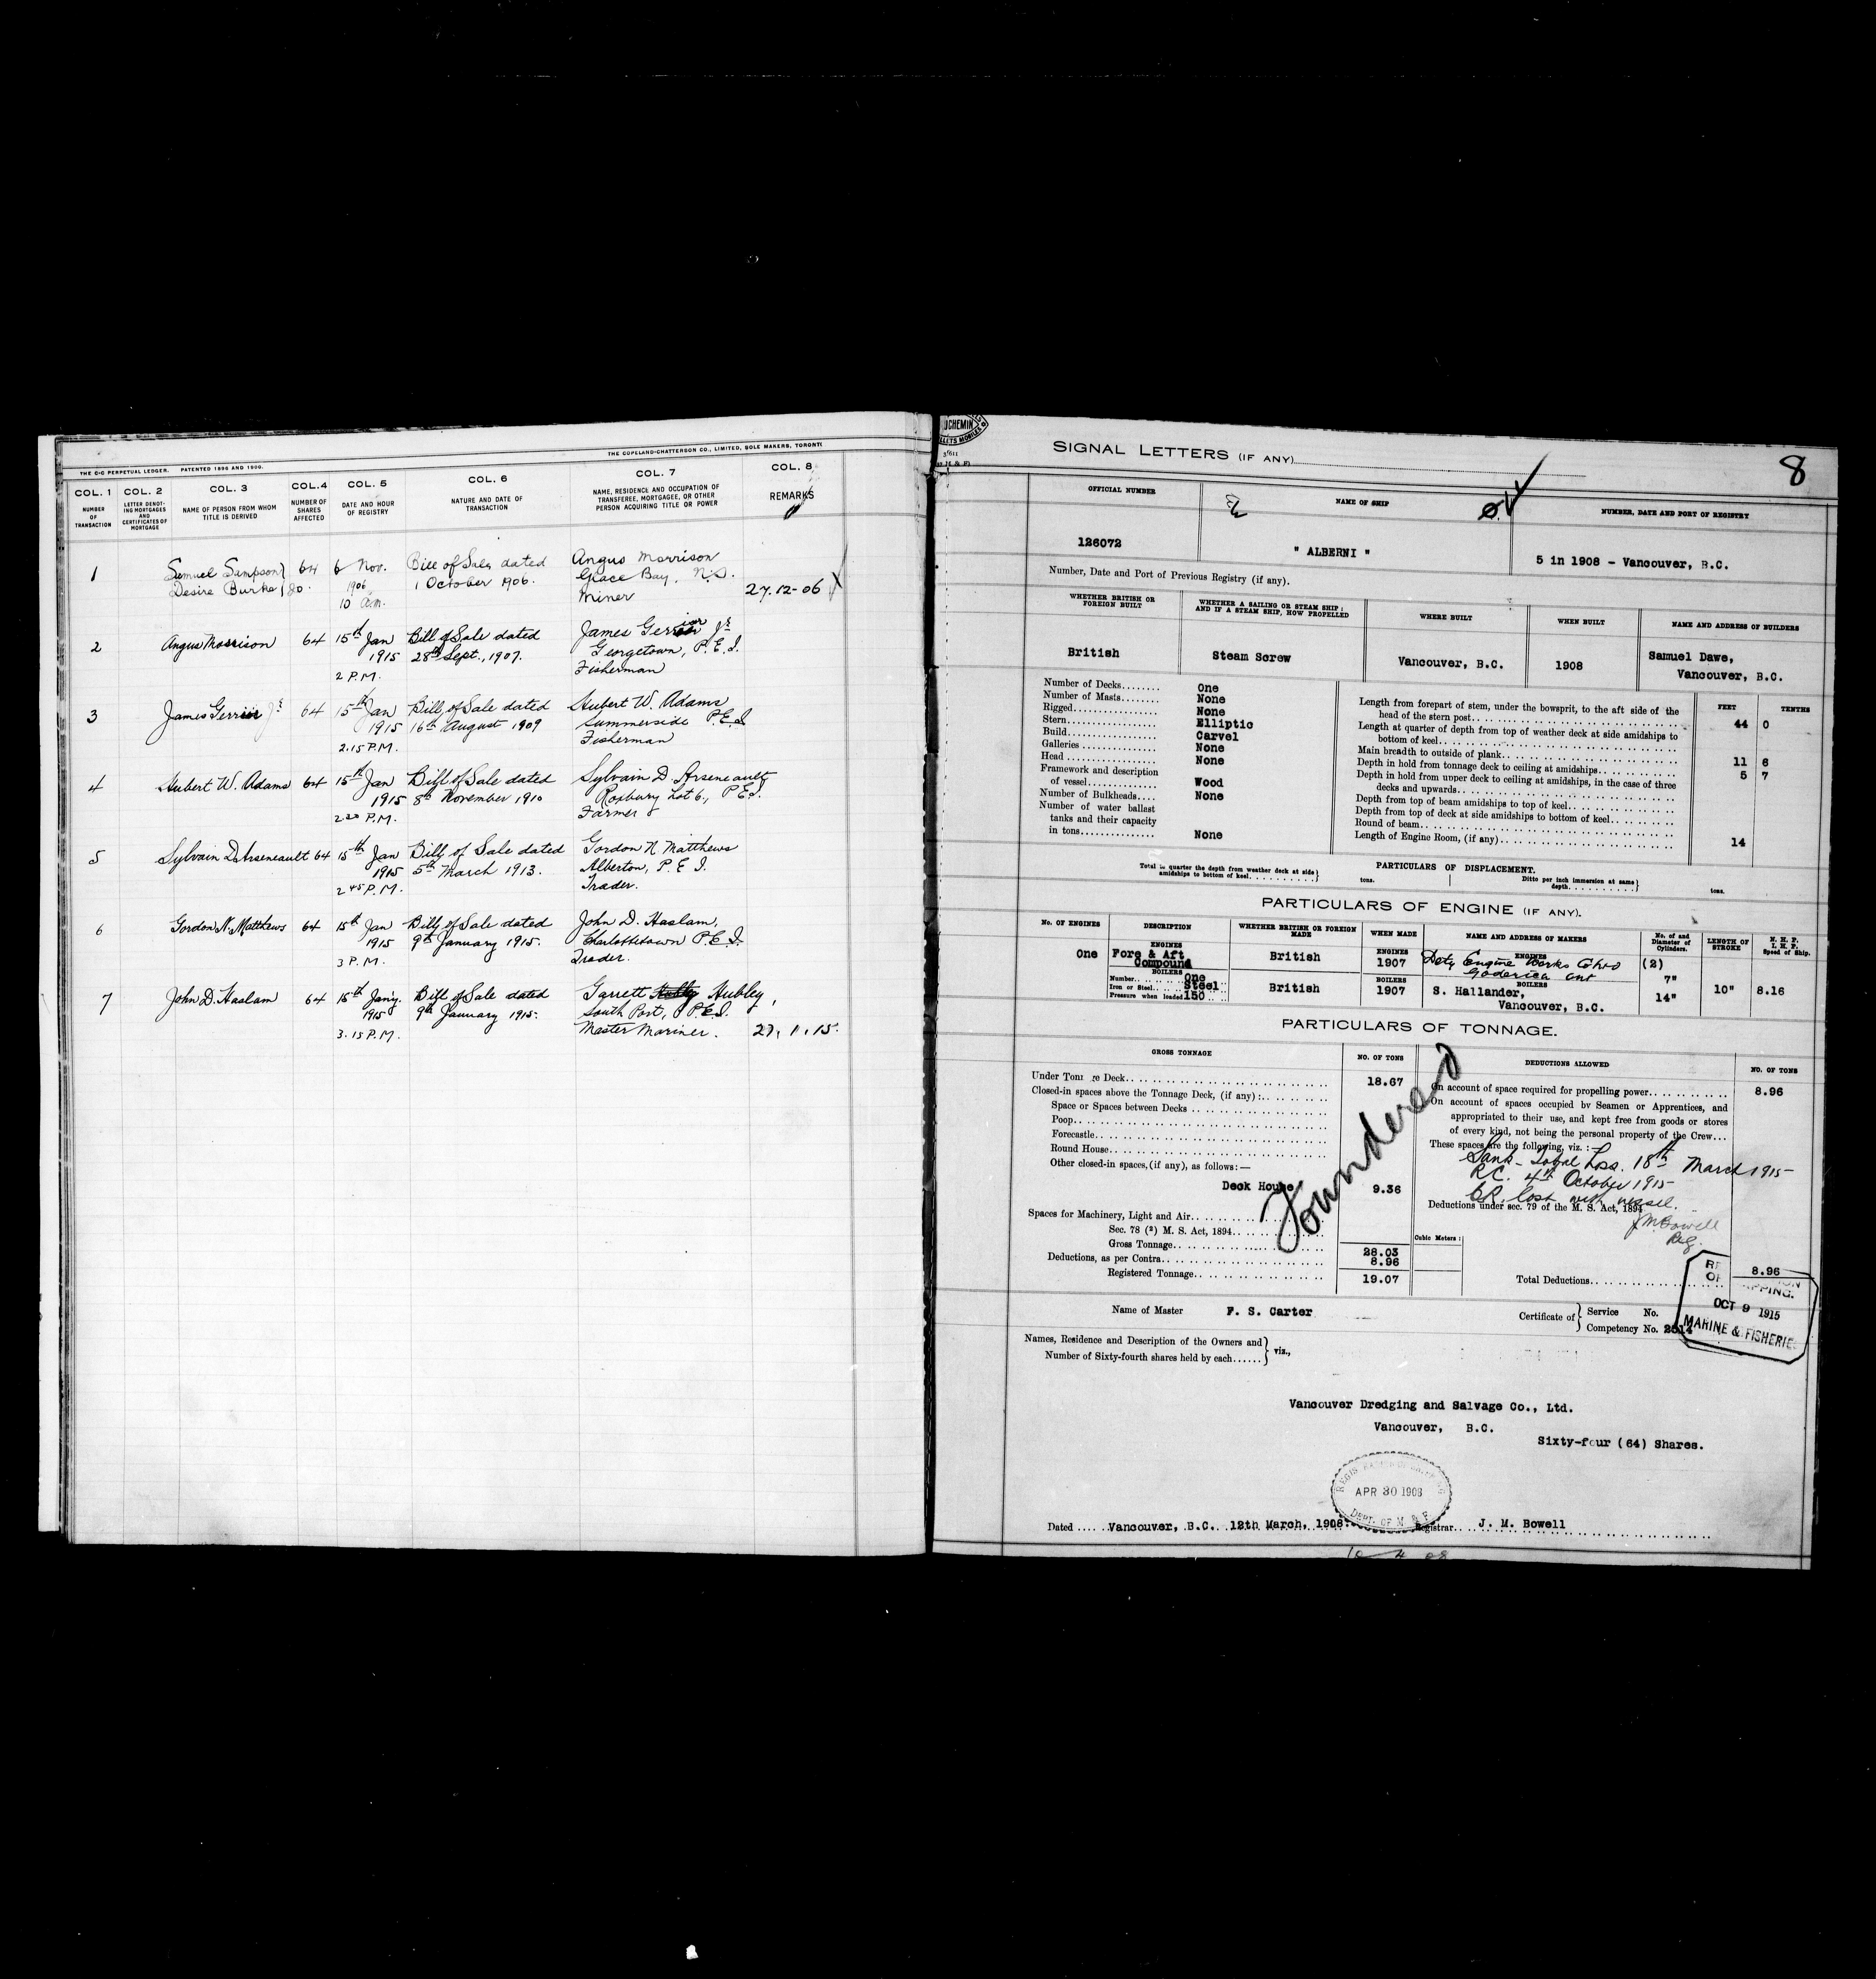 THE C-C PERPETUAL LEDGER. PATENTED 1896 AND 1900.
THE COPELAND-CHATTERSON CO., LIMITED, SOLE MAKERS, TORONTO
COL. 1 COL. 2 COL. 3 COL.4 COL. 5 COL. 6 COL. 7 COL. 8
NUMBER OF TRANSACTION
LETTER DENOTING MORTGAGES AND CERTIFICATES OF MORTGAGE
NAME OF PERSON FROM WHOM TITLE IS DERIVED
NUMBER OF SHARES AFFECTED
DATE AND HOUR OF REGISTRY
NATURE AND DATE OF TRANSACTION
NAME, RESIDENCE AND OCCUPATION OF TRANSFEREE, MORTGAGEE, OR OTHER PERSON ACQUIRING TITLE OR POWER
REMARKS
1 Samuel Sampson 64 6 Nov. Bill of Sale dated Angus Morrison
Desire Burke Jo. 1906 1 October 1906. Glace Bay, N.S.
10 a.m. Miner 27.12-06
2 Angus Morrison 64 15th Jan Bill of Sale dated James Gerrior Jr
1915 28th Sept., 1907. Georgetown, P.E.I.
2 P.M. Fisherman
3 James Gerrior Jr 64 15th Jan Bill of Sale dated Hubert W. Adams
1915 16th August 1909 Summerside P.E.I
2.15 P.M. Fisherman
4 Hubert W. Adams 64 15th Jan Bill of Sale dated Sylvain D. Arseneault
1915 8th November 1910 Roxbury Lot 6, P.E.I.
2 30 P.M. Farmer
5 Sylvain D. Arseneault 64 15th Jan Bill of Sale dated Gordon N Matthews
1915 5th March 1913. Alberton, P.E I.
2 45 P.M. Trader.
6 Gordon N. Matthews 64 15th Jan Bill of Sale dated John D. Haslam,
1915 9th January 1915. Charlottetown P.E.I.
3 P.M. Trader.
7 John D. Haslam 64 15th Jan'y. Bill of Sale dated Garrett Hubley,
1915 9th January 1915. South Port, P.E.I.
3.15 P.M. Master Mariner. 27.1.15.
SIGNAL LETTERS (IF ANY)
8
OFFICIAL NUMBER NAME OF SHIP NUMBER, DATE AND PORT OF REGISTRY
126072 " ALBERNI " 5 in 1908 - Vancouver, B.C.
Number, Date and Port of Previous Registry (if any).
WHETHER BRITISH OR FOREIGN BUILT
WHETHER A SAILING OR STEAM SHIP; AND IF A STEAM SHIP, HOW PROPELLED
WHERE BUILT
WHEN BUILT
NAME AND ADDRESS OF BUILDERS
British Steam Screw Vancouver, B.C. 1908 Samuel Dawe,
Vancouver, B.C.
Number of Decks One
Number of Masts None
Rigged None
Stern Elliptic
Build Carvel
Galleries None
Head None
Framework and description
of vessel Wood
Number of Bulkheads None
Number of water ballast
tanks and their capacity
in tons None
FEET TENTHS
Length from forepart of stem, under the bowsprit, to the aft side of the
head of the stern post 44 0
Length at quarter of depth from top of weather deck at side amidships to
bottom of keel
Main breadth to outside of plank 11 6
Depth in hold from tonnage deck to ceiling at amidships 5 7
Depth in hold from upper deck to ceiling at amidships, in the case of three
decks and upwards
Depth from top of beam amidships to top of keel
Depth from top of deck at side amidships to bottom of keel
Round of beam
Length of Engine Room, (if any) 14
PARTICULARS OF DISPLACEMENT.
Total to quarter the depth from weather deck at side
amidships to bottom of keel tons.
Ditto per inch immersion at same
depth tons.
PARTICULARS OF ENGINE (IF ANY).
No. OF ENGINES DESCRIPTION WHETHER BRITISH OR FOREIGN MADE WHEN MADE NAME AND ADDRESS OF MAKERS No. of and Diameter of Cylinders. LENGTH OF STROKE N. H. P. I. H. P. Speed of Ship.
ENGINES ENGINES ENGINES
One Fore & Aft Compound British 1907 Doty Engine Works
Goderich Ont (2)
7"
BOILERS BOILERS BOILERS
Number One
Iron or Steel Steel
Pressure when loaded 150
British 1907 S. Hallander,
Vancouver, B.C. 14" 10" 8.16
PARTICULARS OF TONNAGE.
GROSS TONNAGE NO. OF TONS DEDUCTIONS ALLOWED NO. OF TONS
Under Tonnage Deck 18.67
Closed-in spaces above the Tonnage Deck, (if any):
Space or Spaces between Decks
Poop
Forecastle
Round House
Other closed-in spaces, (if any), as follows:—
Deck House 9.36
Spaces for Machinery, Light and Air
Sec. 78 (2) M. S. Act, 1894
Gross Tonnage 28.03
Deductions, as per Contra 8.96
Registered Tonnage 19.07
Foundered
On account of space required for propelling power 8.96
On account of spaces occupied by Seamen or Apprentices, and
appropriated to their use, and kept free from goods or stores
of every kind, not being the personal property of the Crew
These spaces are the following, viz.:
Sank - Total Loss. 18th March 1915-
R.C. 4th October 1915-
C.R. lost with vessel.
Deductions under sec. 79 of the M. S. Act, 1894
J.M. Bowell
Reg.
Cubic Meters:
Total Deductions 8.96
OCT 9 1915
MARINE & FISHERIES
Name of Master F. S. Carter
Certificate of Service No.
Competency No. 2514
Names, Residence and Description of the Owners and
Number of Sixty-fourth shares held by each viz.,
Vancouver Dredging and Salvage Co., Ltd.
Vancouver, B.C.
Sixty-four (64) Shares.
APR 30 1908
DEPT. OF M & F
Dated Vancouver, B.C. 12th March, 1908. Registrar J. M. Bowell
10 4 08